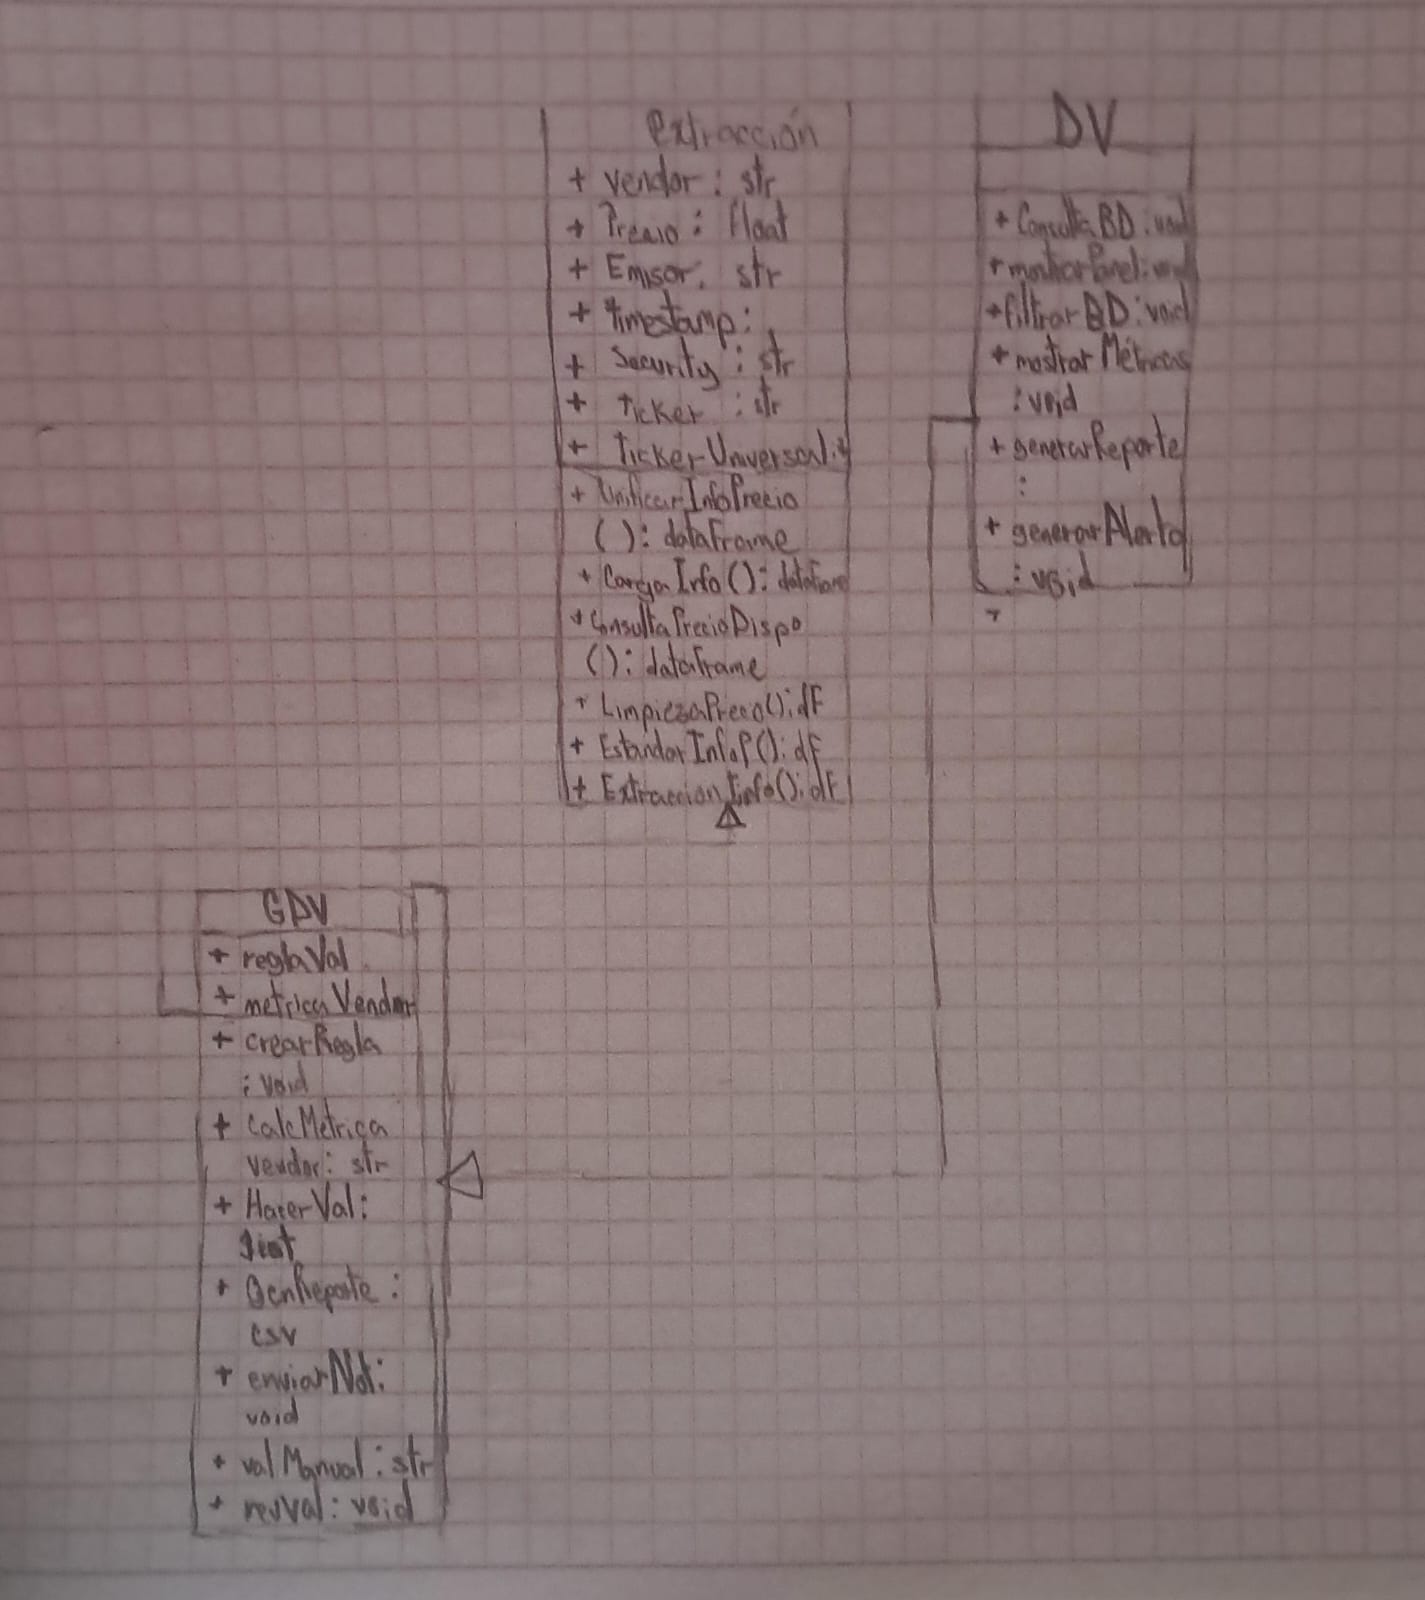 extracción
+ vendor : str
+ Precio : float
+ Emisor : str
+ timestamp :
+ Security : str
+ Ticker : str
+ TickerUniversal :
+ UnificarInfoPrecio
( ) : dataframe
+ CargaInfo () : dataframe
+ ConsultaPrecioDispo
() : dataframe
+ LimpiezaPrecio() : df
+ EstandarInfoP() : df
+ ExtraccionInfo() : df
DV
+ ConsultaBD : void
+ mostrarPanel : void
+ filtrarBD : void
+ mostrarMétricas
: void
+ generarReporte
:
+ generarAlerta
: void
+
GDV
+ reglaVal
+ metricaVendor
+ crearRegla
: void
+ CalcMetrica
vendor : str
+ HacerVal :
+ GenReporte :
csv
+ enviarNot :
void
+ valManual : str
+ revVal : void